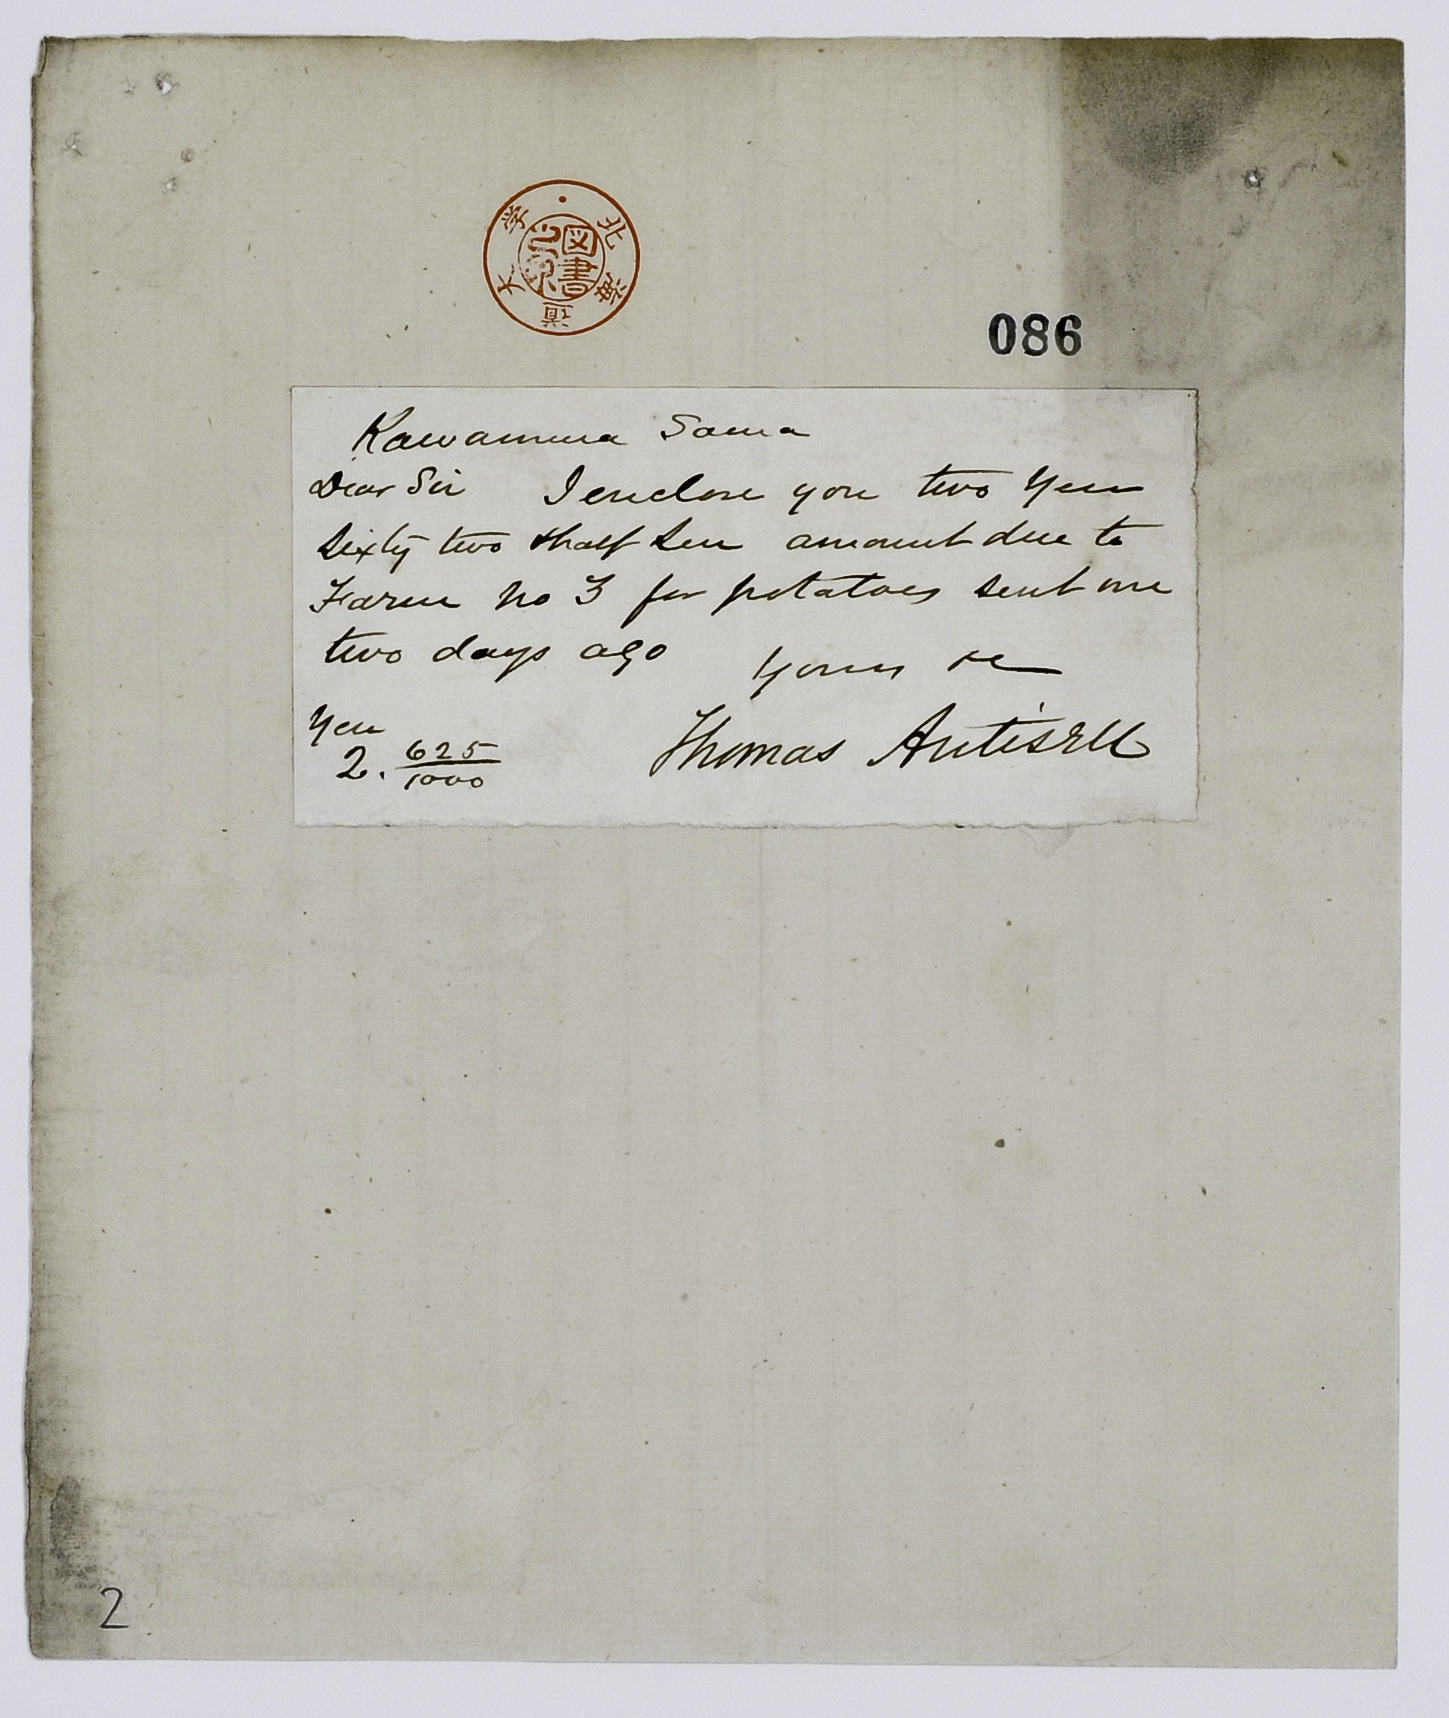 北海道大学
図書之印
086
Kawamura Sama
Dear Sir I enclose you two Yen
sixty two & half Sen amount due to
Farm No 3 for potatoes sent me
two days ago Yours &c
Yen
2. 625/1000
Thomas Antisell
2